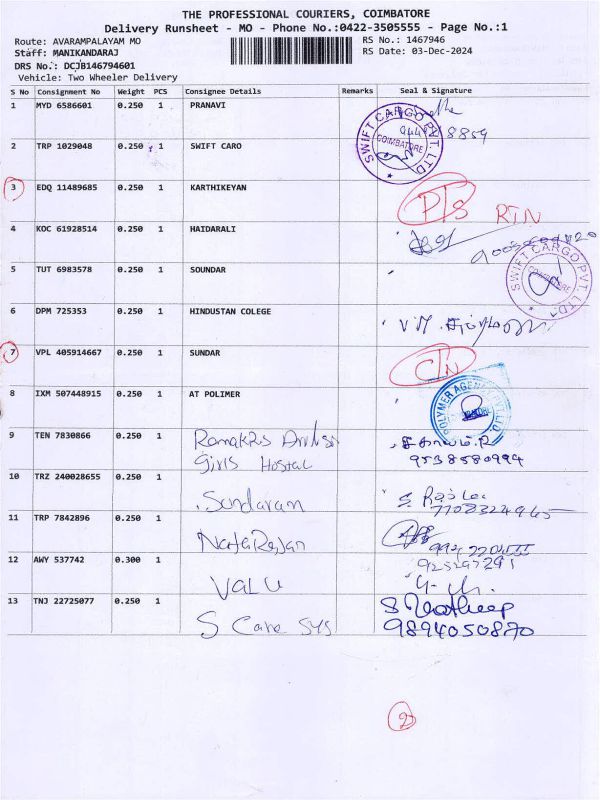 THE PROFESSIONAL COURIERS, COIMBATORE
Delivery Runsheet - MO - Phone No.:0422-3505555 - Page No.:1
Route: AVARAMPALAYAM MO
Staff: MANIKANDARAJ
DRS No.: DCJB146794601
Vehicle: Two Wheeler Delivery
RS No.: 1467946
RS Date: 03-Dec-2024
S No Consignment No Weight PCS Consignee Details Remarks Seal & Signature
1 MYD 6586601 0.250 1 PRANAVI
2 TRP 1029048 0.250 1 SWIFT CARO
SWIFT CARGO PVT. LTD.
COIMBATORE
3 EDQ 11489685 0.250 1 KARTHIKEYAN
RTN
4 KOC 61928514 0.250 1 HAIDARALI
5 TUT 6983578 0.250 1 SOUNDAR
SWIFT CARGO PVT. LTD.
COIMBATORE
6 DPM 725353 0.250 1 HINDUSTAN COLEGE
7 VPL 405914667 0.250 1 SUNDAR
8 IXM 507448915 0.250 1 AT POLIMER
9 TEN 7830866 0.250 1
Girls Hostal
9538580994
10 TRZ 240028655 0.250 1 Sundaram
11 TRP 7842896 0.250 1 NataRajan
12 AWY 537742 0.300 1 VALU
13 TNJ 22725077 0.250 1 S Care SYS
9894050870
2